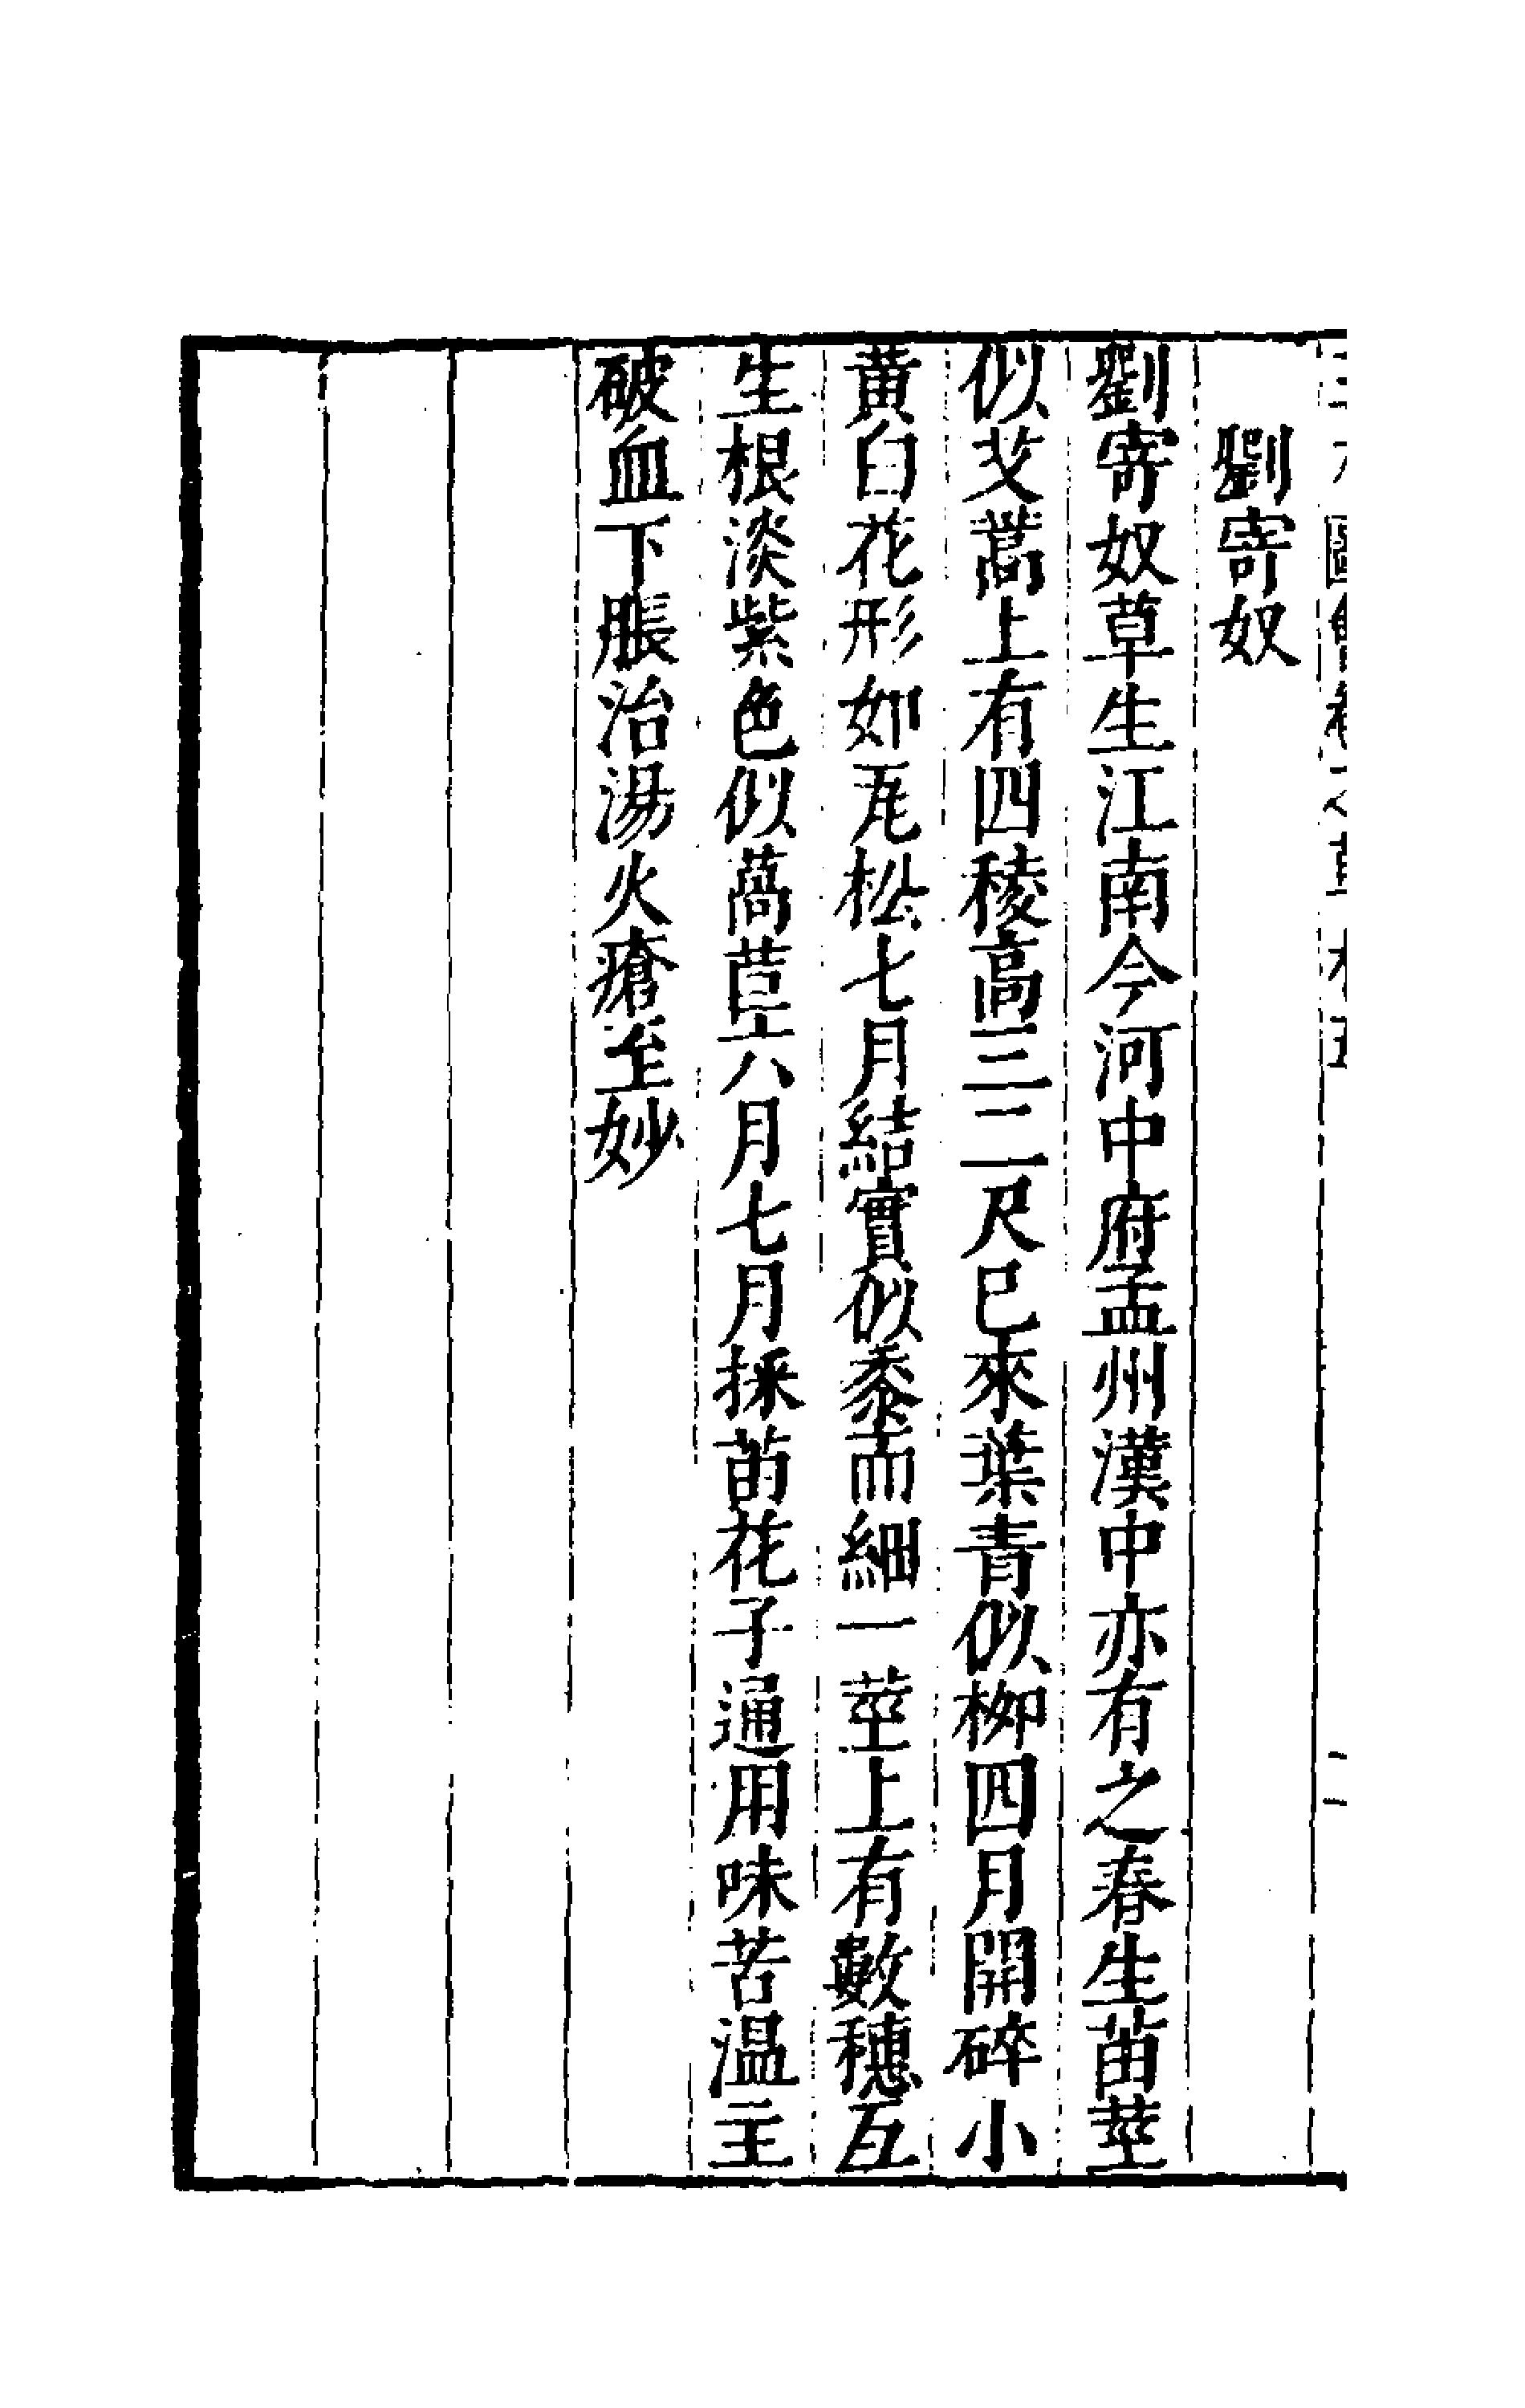 劉寄奴
劉寄奴草生江南今河中府孟州漢中亦有之春生苗莖
似艾蒿上有四稜高三二尺已來葉青似柳四月開碎小
黃白花形如瓦松七月結實似黍而細一莖上有數穗互
生根淡紫色似萵苣六月七月採苗花子通用味苦温主
破血下脹治湯火瘡至妙